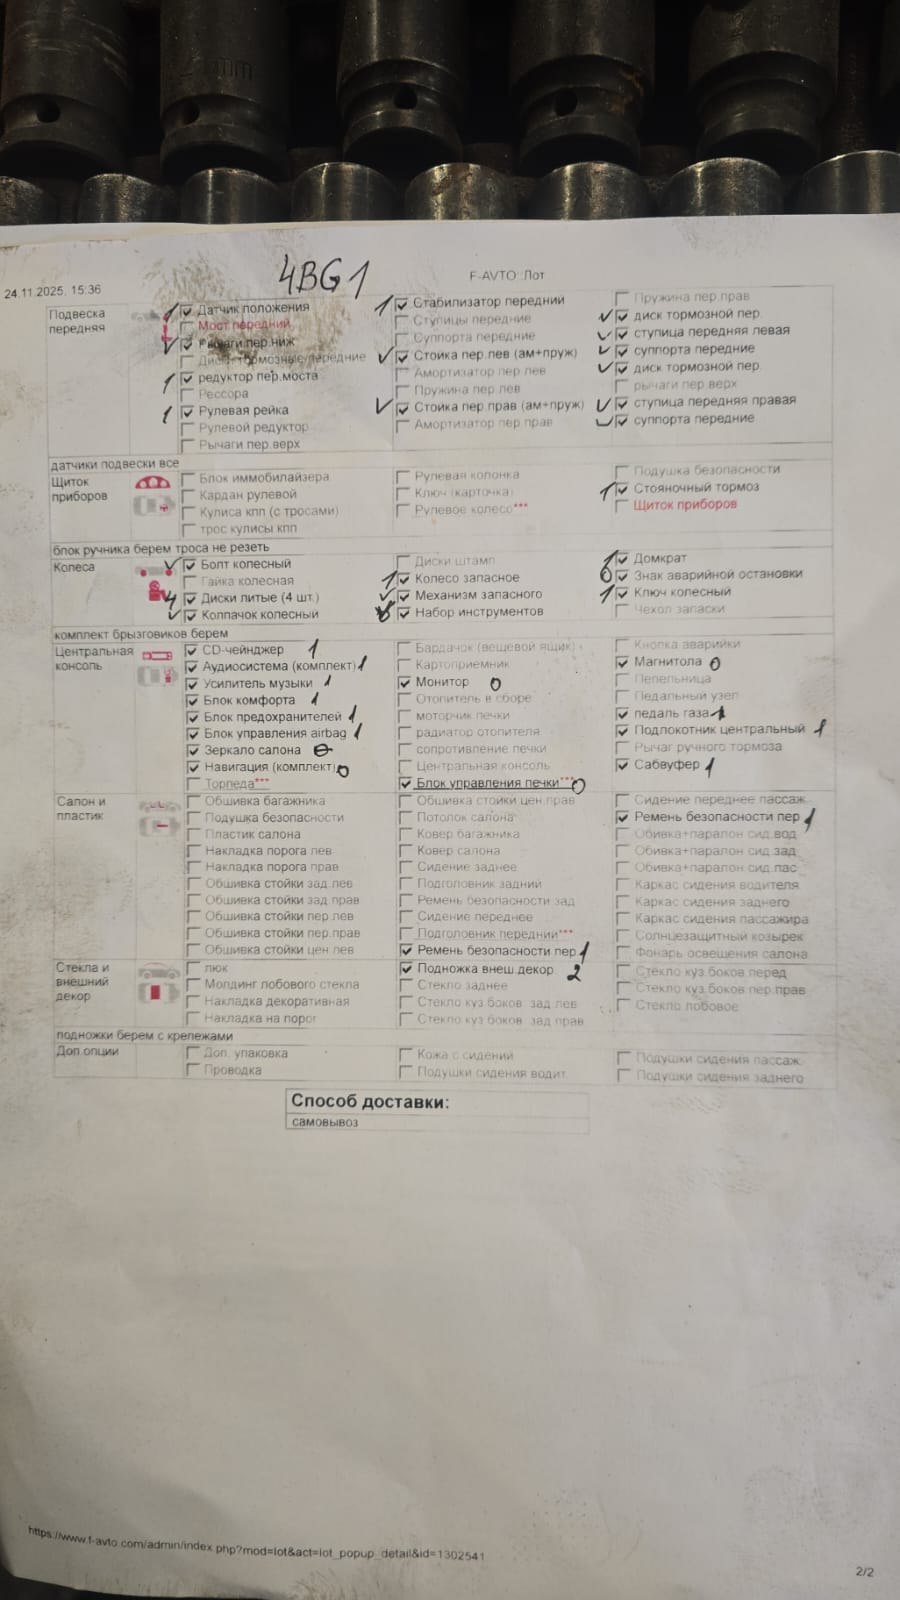 4BG1
24.11.2025, 15:36
F-AVTO: Лот
Подвеска передняя
Датчик положения
Мост передний
Рычаги пер.ниж
Диски тормозные передние
редуктор пер.моста
Рессора
Рулевая рейка
Рулевой редуктор
Рычаги пер.верх
Стабилизатор передний
Ступицы передние
Суппорта передние
Стойка пер.лев (ам+пруж)
Амортизатор пер.лев
Пружина пер.лев
Стойка пер.прав (ам+пруж)
Амортизатор пер.прав
Пружина пер.прав
диск тормозной пер.
ступица передняя левая
суппорта передние
диск тормозной пер.
рычаги пер.верх
ступица передняя правая
суппорта передние
датчики подвески все
Щиток приборов
Блок иммобилайзера
Кардан рулевой
Кулиса кпп (с тросами)
трос кулисы кпп
Рулевая колонка
Ключ (карточка)
Рулевое колесо***
Подушка безопасности
1 Стояночный тормоз
Щиток приборов
блок ручника берем троса не резеть
Колеса
Болт колесный
Гайка колесная
4 Диски литые (4 шт.)
Колпачок колесный
Диски штамп
1 Колесо запасное
Механизм запасного
Набор инструментов
1 Домкрат
0 Знак аварийной остановки
1 Ключ колесный
Чехол запаски
комплект брызговиков берем
Центральная консоль
CD-чейнджер 1
Аудиосистема (комплект) 1
Усилитель музыки 1
Блок комфорта 1
Блок предохранителей 1
Блок управления airbag 1
Зеркало салона 0
Навигация (комплект) 0
Торпеда***
Бардачок (вещевой ящик)
Картоприемник
Монитор 0
Отопитель в сборе
моторчик печки
радиатор отопителя
сопротивление печки
Центральная консоль
Блок управления печки*** 0
Кнопка аварийки
Магнитола 0
Пепельница
Педальный узел
педаль газа 1
Подлокотник центральный 1
Рычаг ручного тормоза
Сабвуфер 1
Салон и пластик
Обшивка багажника
Подушка безопасности
Пластик салона
Накладка порога лев
Накладка порога прав
Обшивка стойки зад.лев
Обшивка стойки зад.прав
Обшивка стойки пер.лев
Обшивка стойки пер.прав
Обшивка стойки цен.лев
Обшивка стойки цен.прав
Потолок салона
Ковер багажника
Ковер салона
Сидение заднее
Подголовник задний
Ремень безопасности зад
Сидение переднее
Подголовник передний***
Ремень безопасности пер 1
Сидение переднее пассаж.
Ремень безопасности пер 1
Обивка+паралон сид.вод
Обивка+паралон сид.зад
Обивка+паралон сид.пас
Каркас сидения водителя
Каркас сидения заднего
Каркас сидения пассажира
Солнцезащитный козырек
Фонарь освещения салона
Стекла и внешний декор
люк
Молдинг лобового стекла
Накладка декоративная
Накладка на порог
Подножка внеш.декор. 2
Стекло заднее
Стекло куз.боков. зад.лев
Стекло куз.боков. зад.прав
Стекло куз.боков.перед
Стекло куз.боков.пер.прав
Стекло лобовое
подножки берем с крепежами
Доп.опции
Доп. упаковка
Проводка
Кожа с сидений
Подушки сидения водит.
Подушки сидения пассаж.
Подушки сидения заднего
Способ доставки:
самовывоз
https://www.f-avto.com/admin/index.php?mod=lot&act=lot_popup_detail&id=1302541
2/2